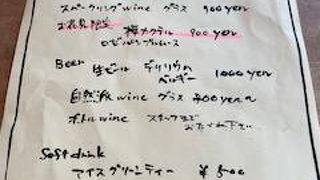 スパークリングwine グラス 900yen
お花見限定 桜カクテル 900yen
ロゼ
Beer 生ビール デリリウム
ベルギー 1000yen
自然派wine グラス 800yen〜
ボトルwine スタッフまで
おたずね下さい
Soft drink
アイスグリーンティー ¥500